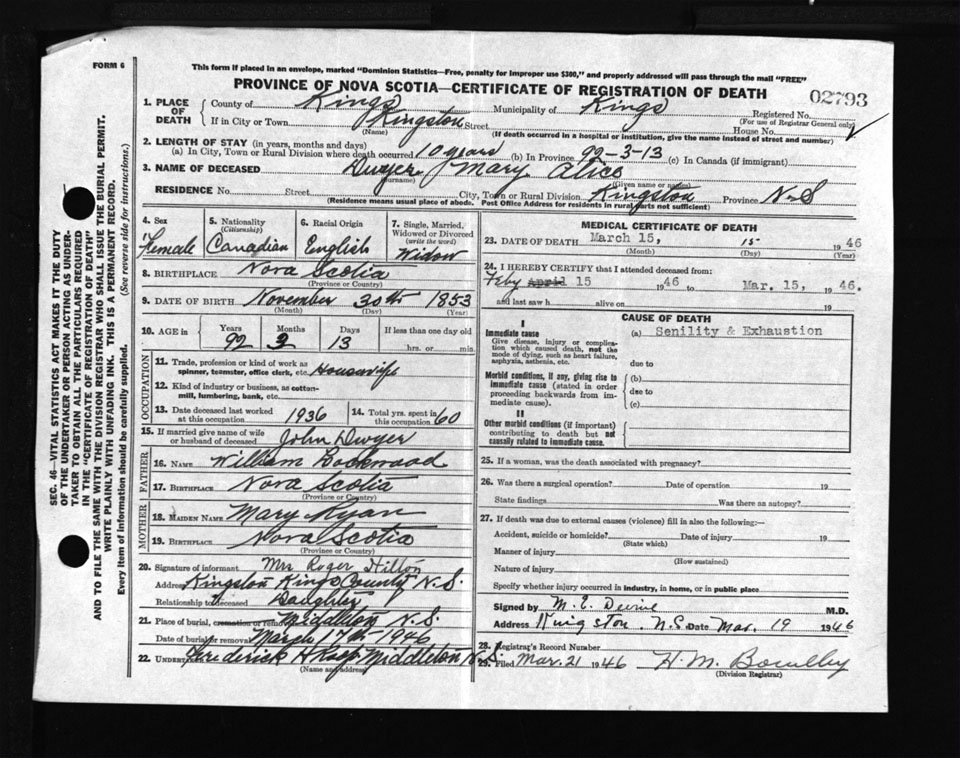 FORM 6
This form if placed in an envelope, marked "Dominion Statistics—Free, penalty for improper use $300," and properly addressed will pass through the mail "FREE"
PROVINCE OF NOVA SCOTIA—CERTIFICATE OF REGISTRATION OF DEATH
02793
1. PLACE OF DEATH
County of Kings Municipality of Kings Registered No.
(For use of Registrar General only)
If in City or Town Kingston Street House No.
(Name) (If death occurred in a hospital or institution, give the name instead of street and number)
2. LENGTH OF STAY (in years, months and days)
(a) In City, Town or Rural Division where death occurred 10 years (b) In Province 92-3-13 (c) In Canada (if immigrant)
3. NAME OF DECEASED Dwyer Mary Alice
(Surname) (Given name or names)
RESIDENCE No. Street City, Town or Rural Division Kingston Province N-S
(Residence means usual place of abode. Post Office Address for residents in rural parts not sufficient)
4. Sex
Female
5. Nationality
(Citizenship)
Canadian
6. Racial Origin
English
7. Single, Married, Widowed or Divorced
(write the word)
Widow
8. BIRTHPLACE Nova Scotia
(Province or Country)
9. DATE OF BIRTH November 30th 1853
(Month) (Day) (Year)
10. AGE in
Years Months Days If less than one day old
92 3 13 hrs. or min.
OCCUPATION
11. Trade, profession or kind of work as
spinner, teamster, office clerk, etc. Housewife
12. Kind of industry or business, as cotton-
mill, lumbering, bank, etc.
13. Date deceased last worked
at this occupation 1936
14. Total yrs. spent in
this occupation 60
15. If married give name of wife
or husband of deceased John Dwyer
FATHER
16. NAME William Lockwood
17. BIRTHPLACE Nova Scotia
(Province or Country)
MOTHER
18. MAIDEN NAME Mary Ryan
19. BIRTHPLACE Nova Scotia
(Province or Country)
20. Signature of informant Mrs Roger Hilton
Address Kingston Kings County N.S.
Relationship to deceased Daughter
21. Place of burial, cremation or removal Middleton N.S.
Date of burial or removal March 17th 1946
22. Undertaker Frederick H Middleton N.S.
(Name and address)
MEDICAL CERTIFICATE OF DEATH
23. DATE OF DEATH March 15, 15 1946
(Month) (Day) (Year)
24. I HEREBY CERTIFY that I attended deceased from:
Feby April 15 1946 to Mar. 15, 1946.
and last saw h alive on 19
CAUSE OF DEATH
I
Immediate cause
Give disease, injury or complica-
tion which caused death, not the
mode of dying, such as heart failure,
asphyxia, asthenia, etc.
(a) Senility & Exhaustion
due to
Morbid conditions, if any, giving rise to
immediate cause (stated in order
proceeding backwards from im-
mediate cause).
(b)
due to
(c)
II
Other morbid conditions (if important)
contributing to death but not
causally related to immediate cause.
25. If a woman, was the death associated with pregnancy?
26. Was there a surgical operation? Date of operation 19
State findings Was there an autopsy?
27. If death was due to external causes (violence) fill in also the following:—
Accident, suicide or homicide? Date of injury 19
(State which)
Manner of injury
(How sustained)
Nature of injury
Specify whether injury occurred in industry, in home, or in public place
Signed by M. E. M.D.
Address Kingston. N.S. Date Mar. 19 1946
28. Registrar's Record Number
29. Filed Mar. 21 1946 H. M.
(Division Registrar)
SEC. 46—VITAL STATISTICS ACT MAKES IT THE DUTY
OF THE UNDERTAKER OR PERSON ACTING AS UNDER-
TAKER TO OBTAIN ALL THE PARTICULARS REQUIRED
IN THE "CERTIFICATE OF REGISTRATION OF DEATH"
AND TO FILE THE SAME WITH THE DIVISION REGISTRAR WHO SHALL ISSUE THE BURIAL PERMIT.
WRITE PLAINLY WITH UNFADING INK. THIS IS A PERMANENT RECORD.
Every item of information should be carefully supplied. (See reverse side for instructions.)